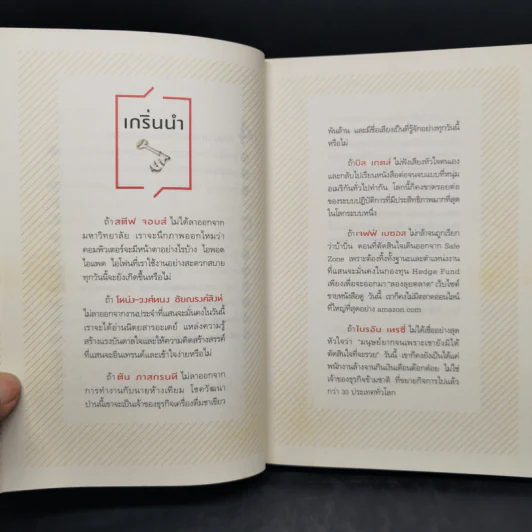 เกริ่นนำ
ถ้า สตีฟ จอบส์ ไม่ได้ลาออกจาก
มหาวิทยาลัย เราจะนึกภาพออกไหมว่า
คอมพิวเตอร์จะมีหน้าตาอย่างไรบ้าง ไอพอด
ไอแพด ไอโฟนที่เราใช้งานอย่างสะดวกสบาย
ทุกวันนี้จะยังเกิดขึ้นหรือไม่
ถ้า โหน่ง-วงศ์ทนง ชัยณรงค์สิงห์
ไม่ลาออกจากงานประจำที่แสนจะมั่นคงในวันนี้
เราจะได้อ่านนิตยสารอะเดย์ แหล่งความรู้
สร้างแรงบันดาลใจและให้ความคิดสร้างสรรค์
ที่แสนจะอินเทรนด์และเข้าใจง่ายหรือไม่
ถ้า ตัน ภาสกรนที ไม่ลาออกจาก
การทำงานกับนายห้างเทียม โชควัฒนา
ป่านนี้เราจะเป็นเจ้าของธุรกิจเครื่องดื่มชาเขียว
พันล้าน และมีชื่อเสียงเป็นที่รู้จักอย่างทุกวันนี้
หรือไม่
ถ้า บิล เกตส์ ไม่ฟังเสียงหัวใจตนเอง
และกลับไปเรียนหนังสือต่อจนจบแบบที่หนุ่ม
อเมริกันทั่วไปทำกัน โลกนี้ก็คงขาดรอยต่อ
ของระบบปฏิบัติการที่มีประสิทธิภาพมากที่สุด
ในโลกระบบหนึ่ง
ถ้า เจฟฟ์ เบซอส ไม่กลัวจนถูกเรียก
ว่าบ้าบิ่น ตอนที่ตัดสินใจเดินออกจาก Safe
Zone เพราะต้องทิ้งทั้งฐานและตำแหน่งงาน
ที่แสนจะมั่นคงในกองทุน Hedge Fund
เพียงเพื่อจะออกมา "ลองลุยตลาด" เว็บไซต์
ขายหนังสือดู วันนี้ เราก็คงไม่มีตลาดออนไลน์
ที่ใหญ่ที่สุดอย่าง amazon.com
ถ้า ไบรอัน เทรซี่ ไม่ได้เชื่ออย่างสุด
หัวใจว่า "มนุษย์ยากจนเพราะเขายังมิได้
ตัดสินใจที่จะรวย" วันนี้ เขาก็คงยังเป็นได้แค่
พนักงานล้างจานกินเงินเดือนต๊อกต๋อย ไม่ใช่
เจ้าของธุรกิจข้ามชาติ ที่ขยายกิจการไปแล้ว
กว่า 30 ประเทศทั่วโลก